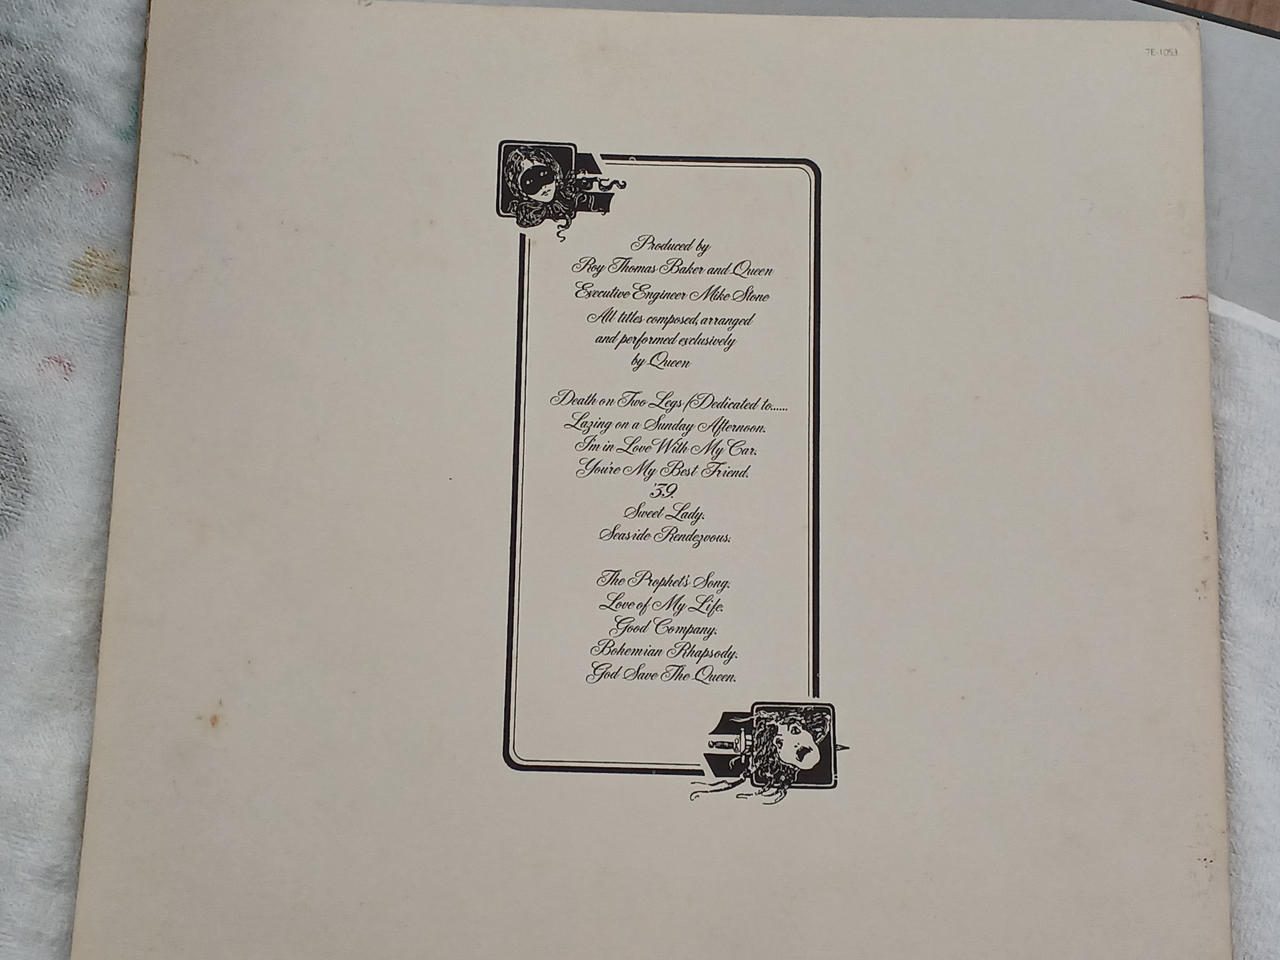 7E-1053
Produced by
Roy Thomas Baker and Queen
Executive Engineer Mike Stone
All titles composed, arranged
and performed exclusively
by Queen
Death on Two Legs (Dedicated to......
Lazing on a Sunday Afternoon.
I'm in Love With My Car.
You're My Best Friend.
'39.
Sweet Lady.
Seaside Rendezvous.
The Prophet's Song.
Love of My Life.
Good Company.
Bohemian Rhapsody.
God Save The Queen.